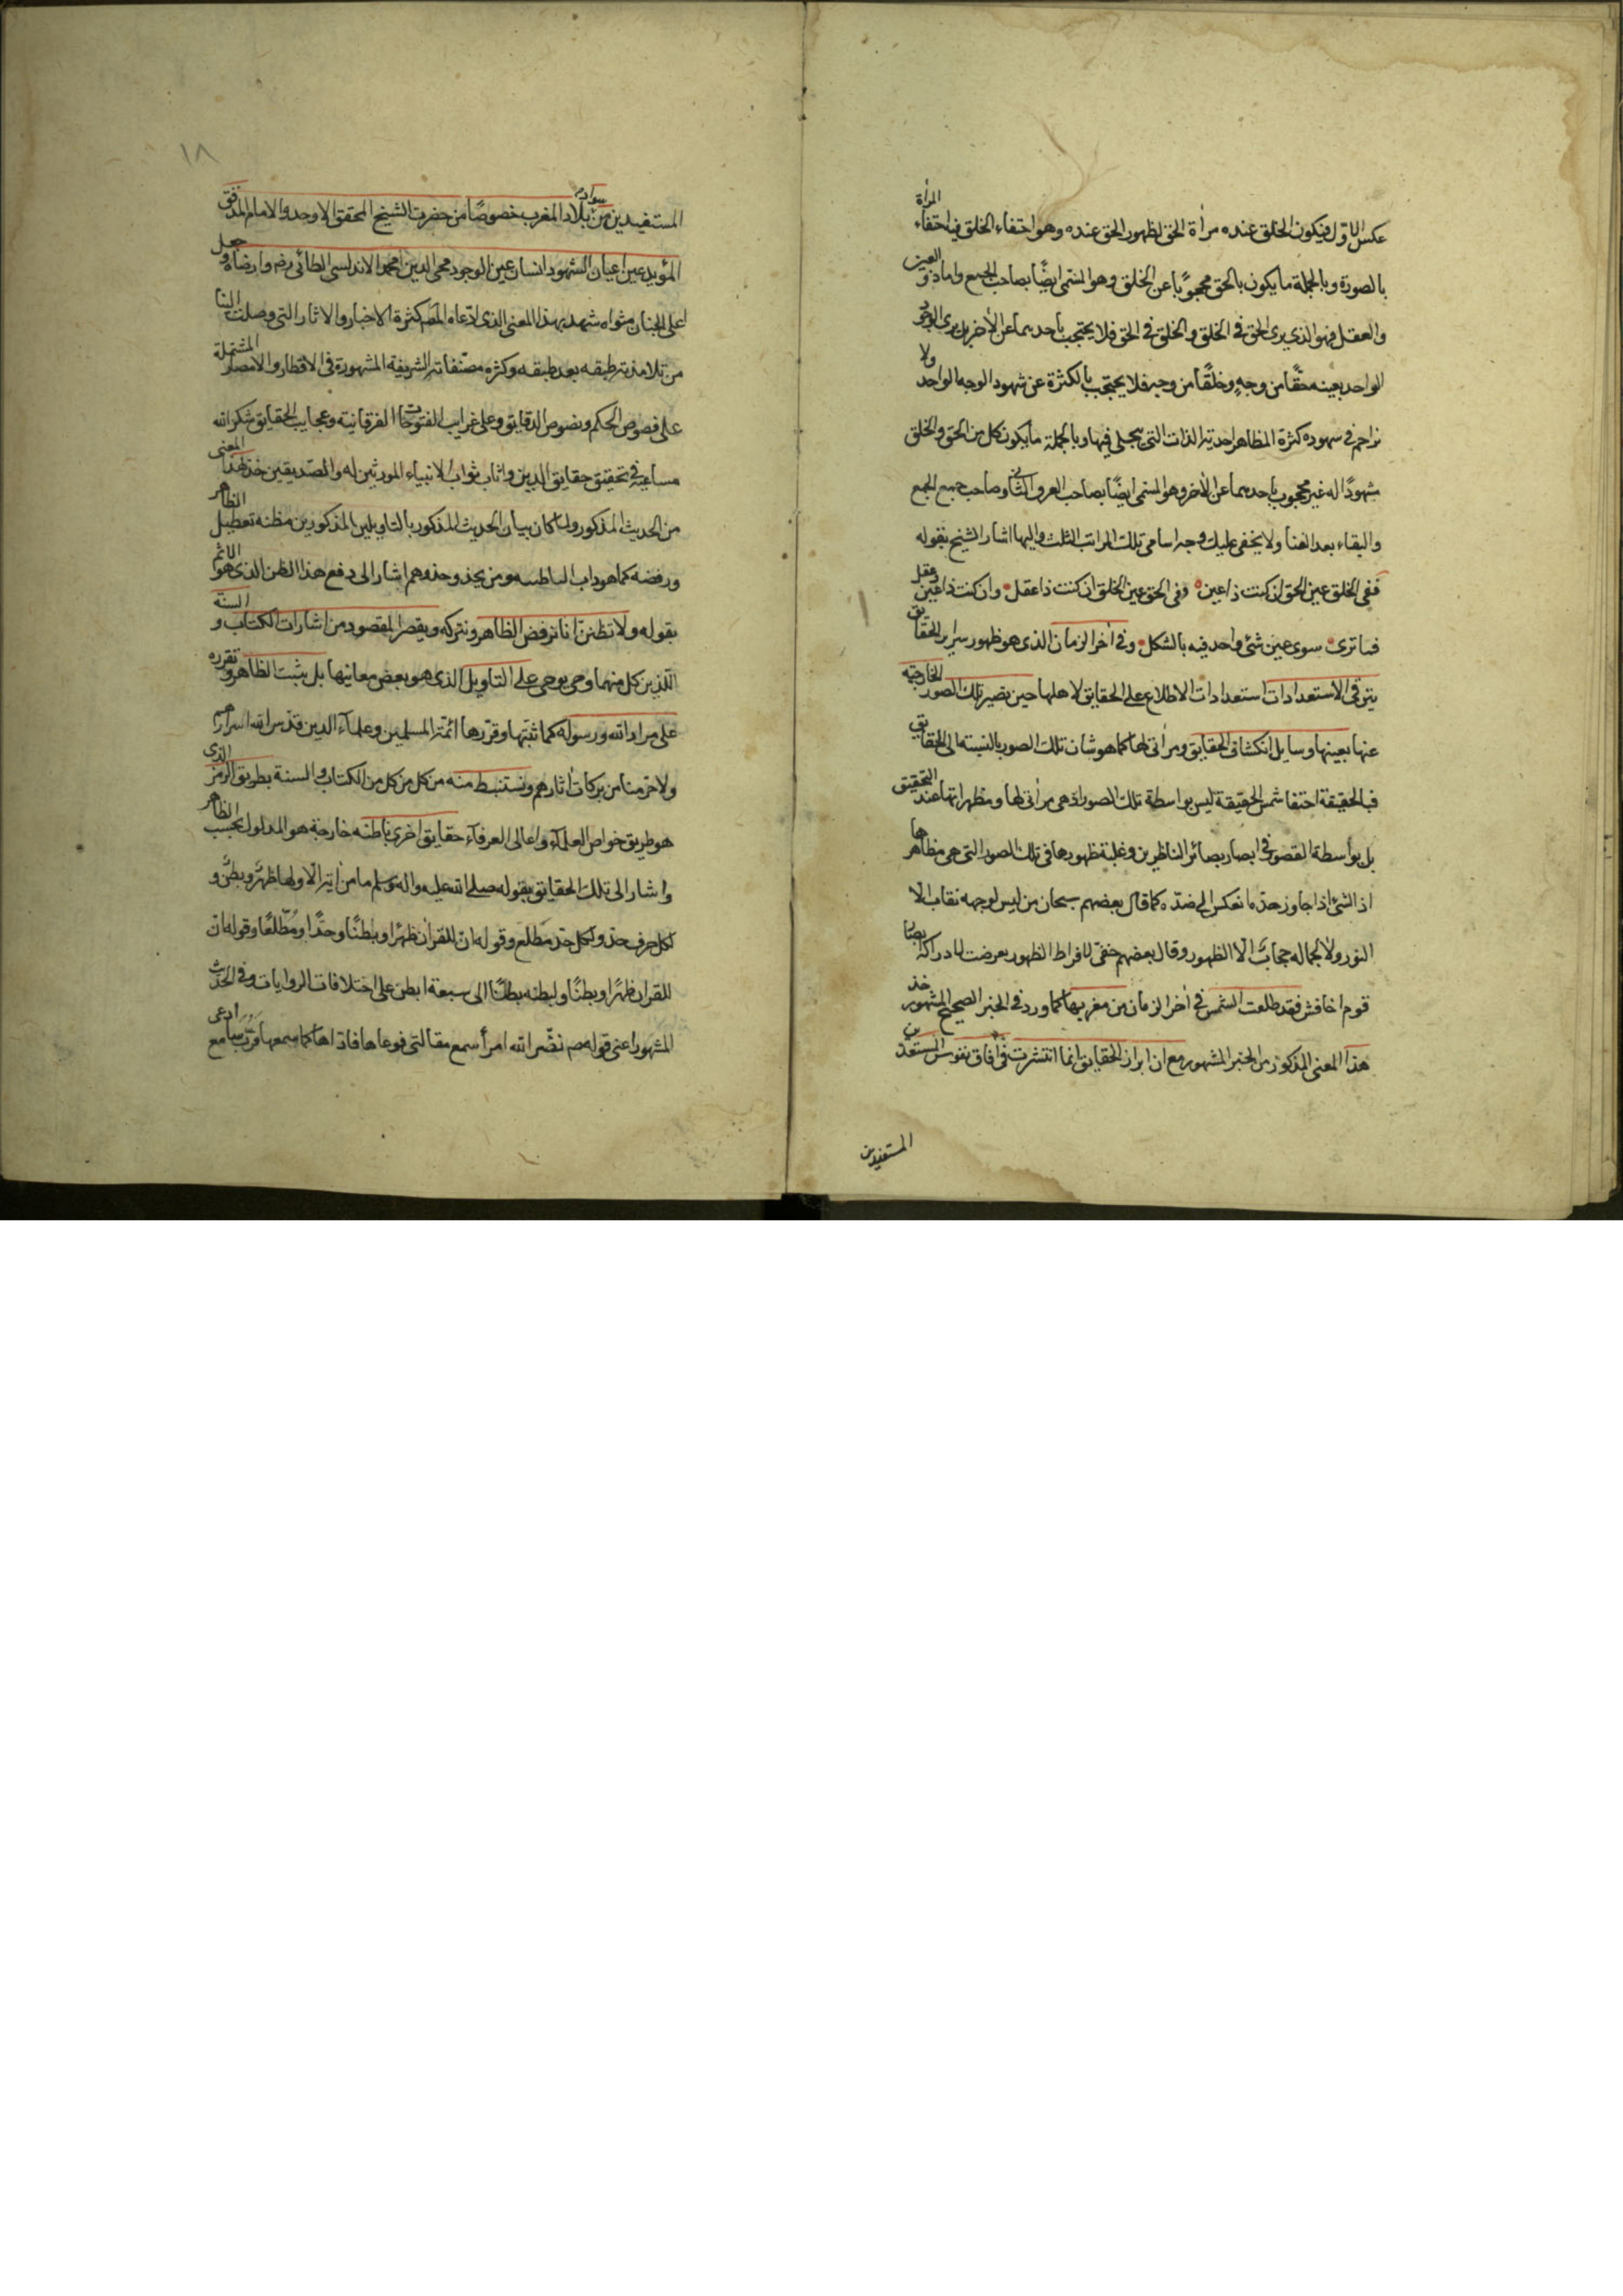 عكس الاوّل فيكون الخلق عنده مرأة الحق لظهور الحق عنده وهو اختفاء الخلق فيه اختفاء المرأة
بالصورة وبالجملة ما يكون بالحق محجوبًا عن الخلق وهو المسمى ايضًا بصاحب الجمع واما ذو العين
والعقل فهو الذي يرى الحق في الخلق والخلق في الحق فلا يحتجب باحديهما عن الأخر بل يرى الوجود
الواحد بعينه حقًّا من وجهٍ وخلقًا من وجه فلا يحتجب بالكثرة عن شهود الوجه الواحد ولا
تزاحم في شهوده كثرة المظاهر احدية الذات التى يتجلى فيها وبالجملة ما يكون كل من الحق والخلق
مشهودًا له غير محجوب باحديهما عن الأخر وهو المسمى ايضًا بصاحب الفرق الثانى وصاحب جمع الجمع
والبقاء بعد الفنا ولا يخفى عليك وجه اسامى تلك المراتب الثلث واليها اشار الشيخ بقوله
ففى الخلق عين الحق ان كنت ذا عين وفى الحق عين الخلق ان كنت ذا عقل وان كنت ذا عين وعقل
فما ترى سوى عين شئ واحد فيه بالشكل وفى أخر الزمان الذى هو ظهور سراير الحقايق
يترقى الاستعدادات استعدادات الاطلاع على الحقايق لاهلها حين يصير تلك الصور الخارجية
عنها بعينها وسايل انكشاف الحقايق ومرأتى لها كما هو شان تلك الصور بالنسبة الى الحقايق
فبالحقيقة اختفا شمس الحقيقة ليس بواسطة تلك الصور اذ هى مرأتى لها ومظهراتها عند التحقيق
بل بواسطة القصور فى ابصار بصائر الناظرين وغلبة ظهورها فى تلك الصور التى هى مظاهرها
اذ الشئ اذا جاوز حدّه انعكس الى ضدّه كما قال بعضهم سبحان من ليس لوجهه نقاب الا
النور ولا لجماله حجاب الّا الظهور وقال بعضهم خفىّ لافراط الظهور تعرضت لادراكه ابصار
قوم اخافش فقد طلعت الشمس فى أخر الزمان من مغربها كما ورد فى الخبر الصحيح المشهور خذ
هذا المعنى المذكور من الخبر المشهور مع ان ابراز الحقايق انما انتشرت فى افاق نفوس المستعدين
المستفيدين
١٨
المستفيدين من سواد بلاد المغرب خصوصًا من حضرت الشيخ المحقق الاوحد والامام المدقق
المؤيد عين اعيان الشهود انسان عين الوجود محى الدين محمد الاندلسى الطائى رض وارضاه وجعل
اعلى الجنان مثواه شهد بهذا المعنى الذى ادّعاه المصّ كثرة الاخبار والاثار التى وصلت الينا
من تلامذته طبقه بعد طبقه وكثره مصنّفاته الشريفة المشهورة فى الاقطار والامصار المشتملة
على فصوص الحكم ونصوص الدقايق وعلى غرايب الفتوحات الفرقانية وعجايب الحقايق شكر الله
مساعيه فى تحقيق حقايق الدين واثاب ثواب الانبياء المورثين له والصّديقين خذ هذا المعنى
من الحديث المذكور ولما كان بيان الحديث المذكور بالتاويلين المذكورين مظنه تعطيل الظاهر
ورفضه كما هو داب الباطنيه ومن يحذو حذوهم اشار الى دفع هذا الظن الذى هو الاثم
بقوله ولا تظنن انا نرفض الظاهر ونتركه ويقصر المقصود من اشارات الكتاب والسنة
الّذين كل منهما وحى يوحى على التاويل الذى هو بعض معانيها بل يثبت الظاهر ونقرره
على مراد الله ورسوله كما ثبّتها وقرّرها ائمّة المسلمين وعلماء الدين قدّس الله اسرارهم
ولا حرّمنا من بركات أثارهم ونستنبط منه من كل من كل من الكتاب والسنة بطريق الرمز الذى
هو طريق خواص العلماء واعالى العرفاء حقايق اخرى باطنه خارجة هو المدلول بحسب الظاهر
واشار الى تلك الحقايق بقوله صلى الله عليه واله وسلم ما من أية الّا ولها ظهر وبطن و
لكل حرف حدّ ولكل حدّ مطّلع وقوله انّ للقرأن ظهرًا وبطنًا وحدًّا ومُطّلعًا وقوله ان
للقرأن ظهرًا وبطنًا ولبطنه بطنًا الى سبعة ابطن على اختلافات الروايات وفى الحديث
المشهور اعنى قوله صم نضّر الله امرأ سمع مقالتى فوعاها فادّاها كما سمعها فربّ سامع